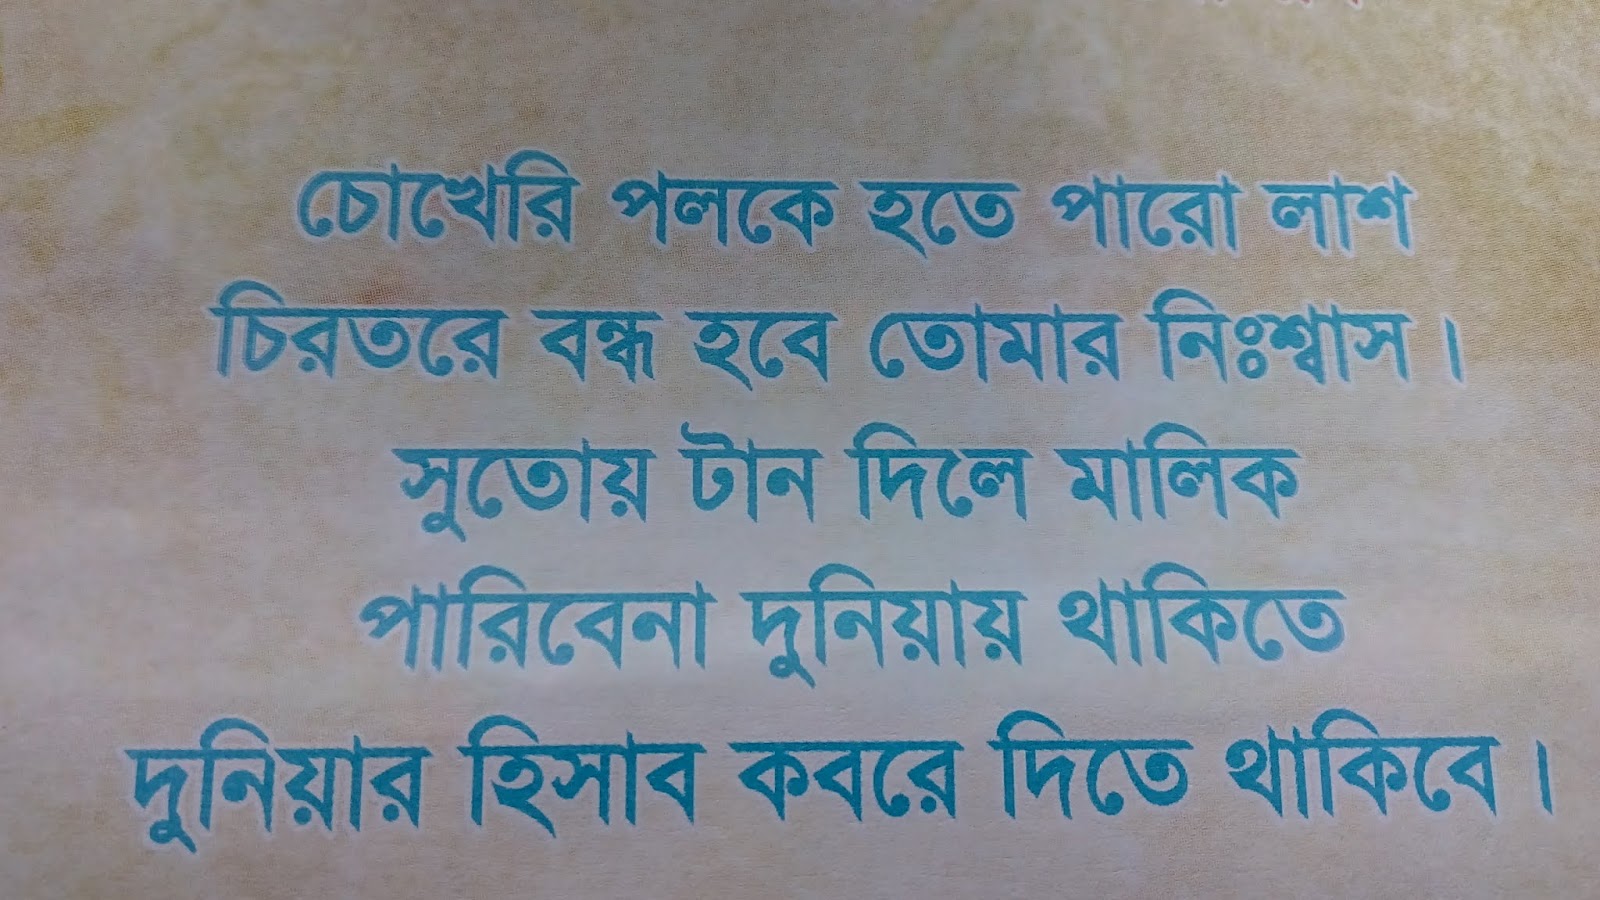 চোখেরি পলকে হতে পারো লাশ
চিরতরে বন্ধ হবে তোমার নিঃশ্বাস।
সুতোয় টান দিলে মালিক
পারিবেনা দুনিয়ায় থাকিতে
দুনিয়ার হিসাব কবরে দিতে থাকিবে।